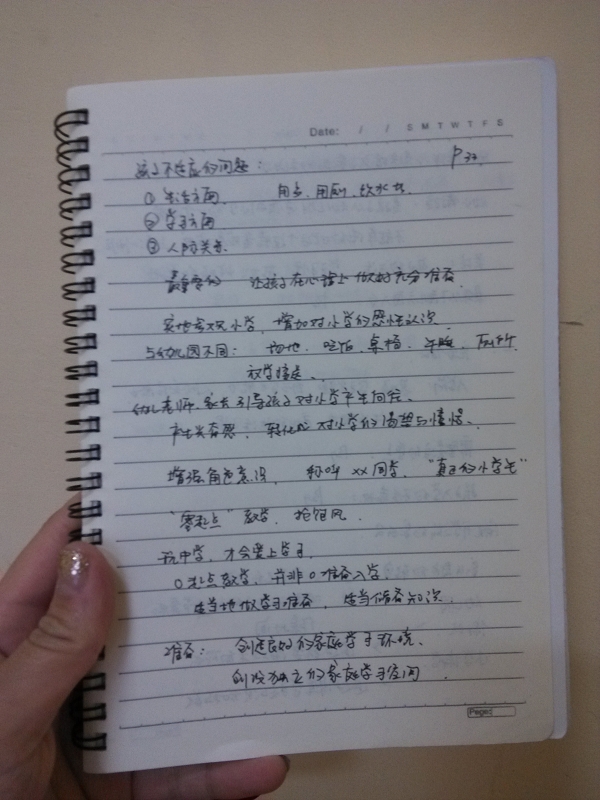 Date: / / S M T W T F S
孩子不适应的问题: P33
① 生活方面, 用具, 用厕, 饮水等.
② 学习方面
③ 人际关系.
最重要的 让孩子在心理上做好充分准备
实地参观小学, 增加对小学的感性认识.
与幼儿园不同: 场地、吃饭、桌椅、年级、厕所
教学楼等.
幼儿老师、家长引导孩子对小学产生向往.
产生共鸣感, 转化成对小学的渴望与憧憬.
增强角色意识, 称呼 xx同学, “真正的小学生”
“零起点”教学, 抢跑风.
玩中学, 才会爱上学习.
0起点教学, 并非0准备入学.
适当地做学习准备, 适当储备知识
准备: 创造良好的家庭学习环境.
创设独立的家庭学习空间.
Page: